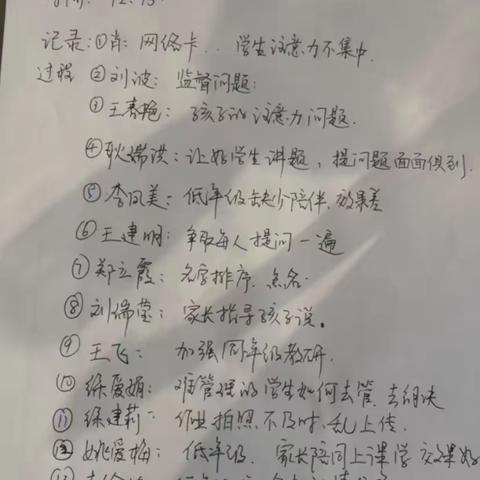 记录:①肖: 网络卡.. 学生注意力不集中.
过程 ②刘波: 监督问题:
③王春艳: 孩子的注意力问题.
④耿瑞洪: 让好学生讲题, 提问题面面俱到.
⑤李凤美: 低年级缺少陪伴, 效果差
⑥王建明: 争取每人提问一遍
⑦郑立霞: 名字排序. 点名.
⑧刘儒莹: 家长指导孩子说。
⑨王飞: 加强同年级教研.
⑩徐爱娟: 难管理的学生如何去管. 去解决
⑪徐建莉: 作业拍照不及时, 乱上传.
⑫姚爱梅: 低年级. 家长陪同上课学